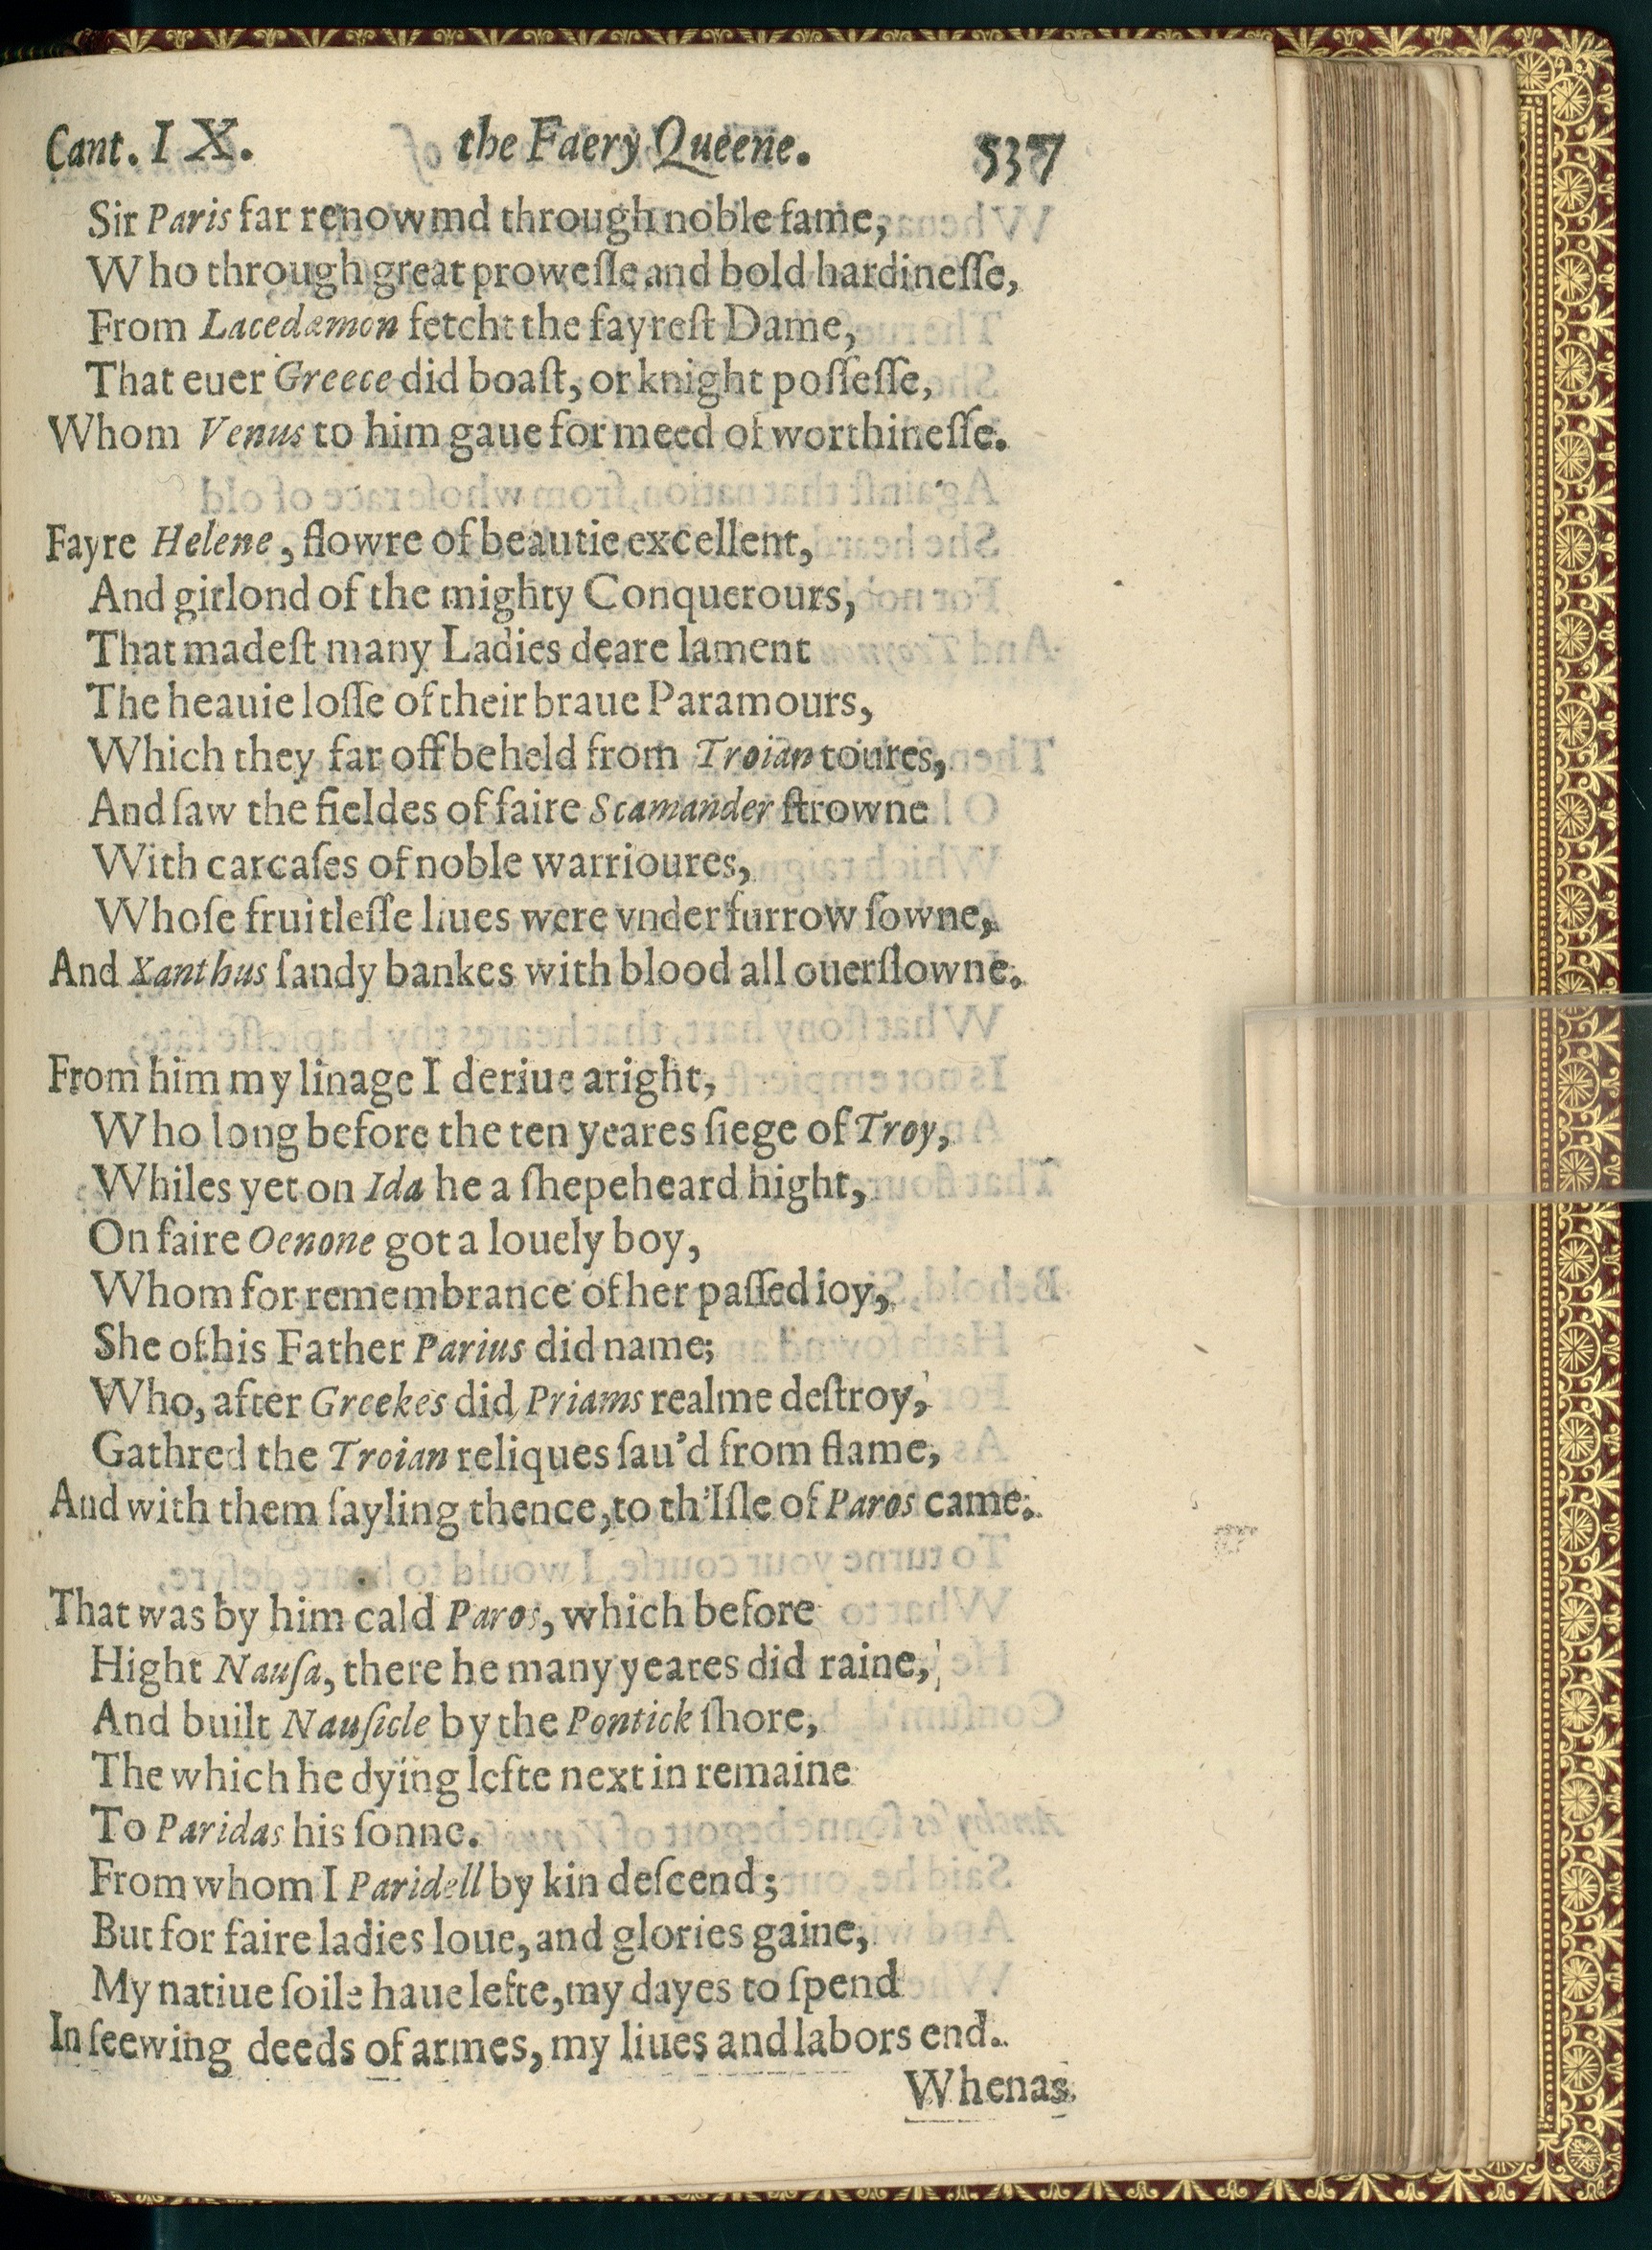 Cant. IX. the Faery Queene. 537
Sir Paris far renowmd through noble fame,
Who through great prowesse and bold hardinesse,
From Lacedæmon fetcht the fayrest Dame,
That euer Greece did boast, or knight possesse,
Whom Venus to him gaue for meed of worthinesse.
Fayre Helene, flowre of beautie excellent,
And girlond of the mighty Conquerours,
That madest many Ladies deare lament
The heauie losse of their braue Paramours,
Which they far off beheld from Troian toures,
And saw the fieldes of faire Scamander strowne
With carcases of noble warrioures,
Whose fruitlesse liues were vnder furrow sowne,
And Xanthus sandy bankes with blood all ouerflowne.
From him my linage I deriue aright,
Who long before the ten yeares siege of Troy,
Whiles yet on Ida he a shepeheard hight,
On faire Oenone got a louely boy,
Whom for remembrance of her passed ioy,
She of his Father Parius did name;
Who, after Greekes did Priams realme destroy,
Gathred the Troian reliques sau'd from flame,
And with them sayling thence, to th'Isle of Paros came.
That was by him cald Paros, which before
Hight Nausa, there he many yeares did raine,
And built Nausicle by the Pontick shore,
The which he dying lefte next in remaine
To Paridas his sonne.
From whom I Paridell by kin descend;
But for faire ladies loue, and glories gaine,
My natiue soile haue lefte, my dayes to spend
In seewing deeds of armes, my liues and labors end.
Whenas